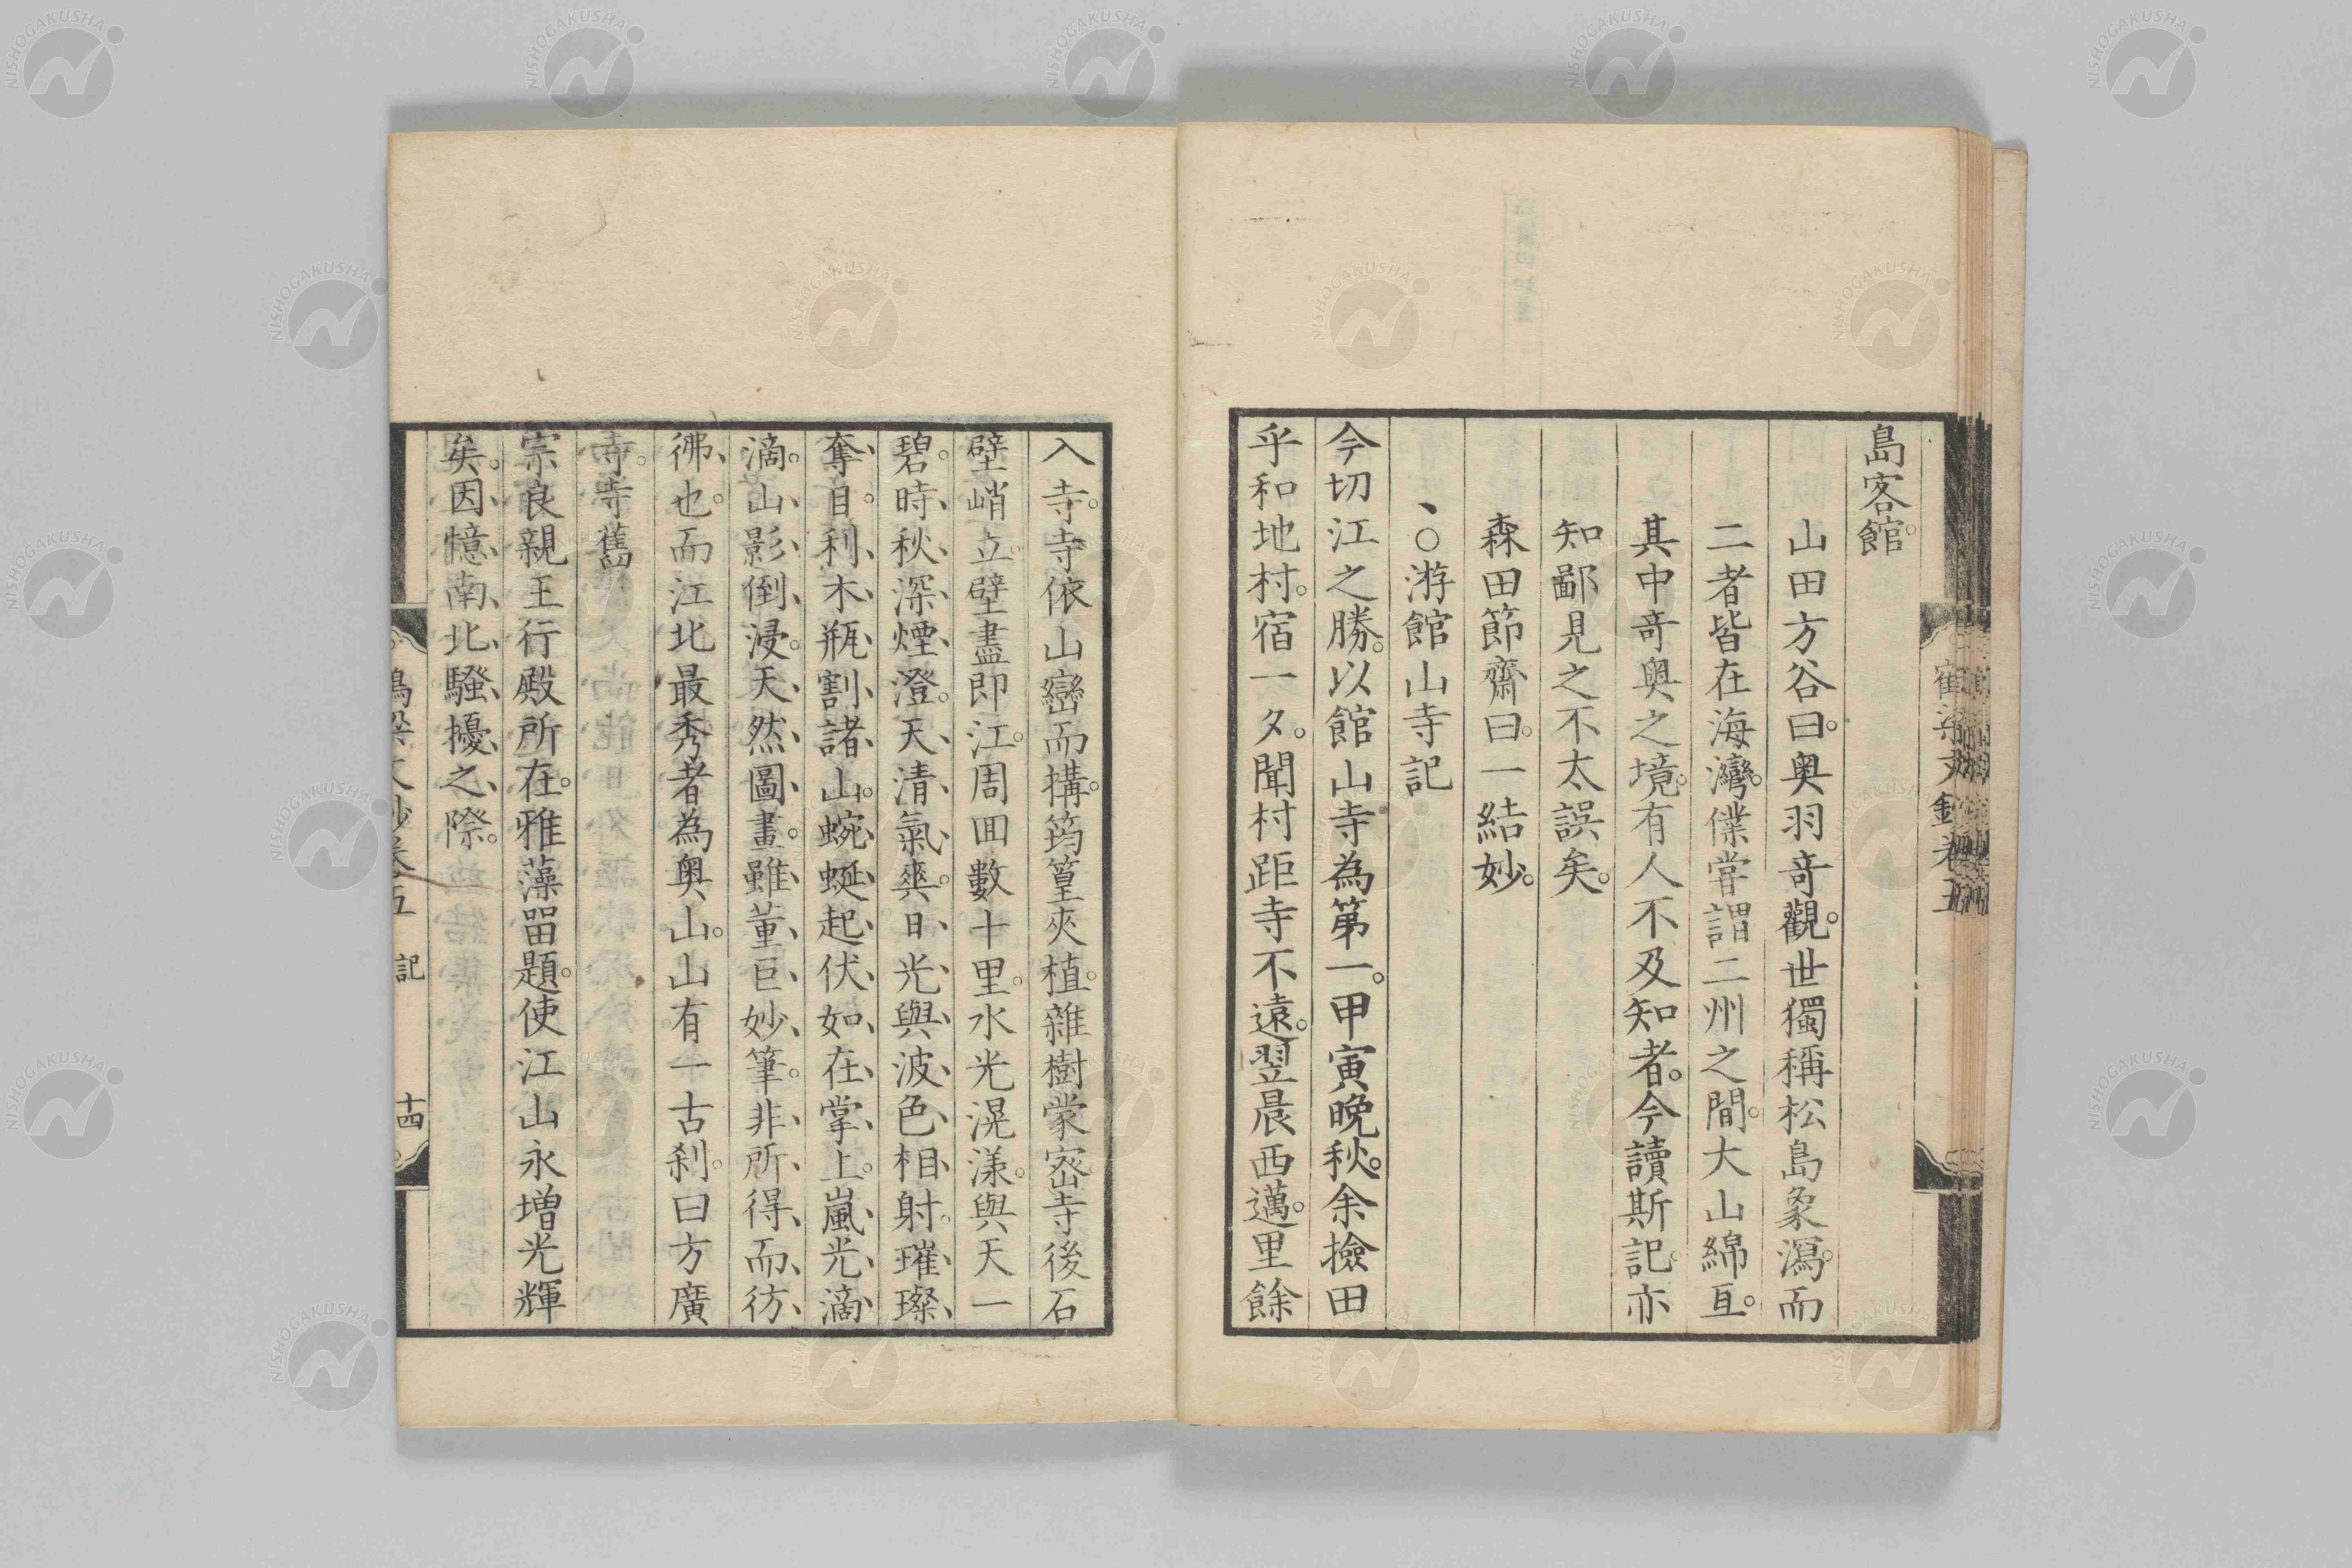 島客館。
山田方谷曰。奥羽竒觀。世獨稱松島象瀉。而
二者皆在海灣。僕甞謂二州之間。大山綿亙。
其中竒奥之境。有人不及知者。今讀斯記。亦
知鄙見之不太誤矣。
森田節齋曰。一結妙。
、○游館山寺記
今切江之勝。以館山寺為第一。甲寅晩秋。余撿田
乎和地村。宿一夕。聞村距寺不遠。翌晨西邁。里餘
入寺。寺依山巒而搆。筠篁夾植。雜樹蒙密寺後石
壁峭立。壁盡即江。周囬數十里。水光滉漾。與天一
碧。時秋深煙澄。天清氣爽。日光與波色相射。璀璨
奪目。利木瓶割諸山。蜿蜒起伏如在掌上。嵐光滴
滴。山影倒浸。天然圖畫。雖董巨妙筆。非所得而彷
彿也。而江北最秀者為奥山。山有一古刹。曰方廣
寺。寺舊
宗良親王行殿所在。雅藻畱題。使江山永增光輝
矣。因憶南北騷擾之際。
記
十四
NISHOGAKUSHA